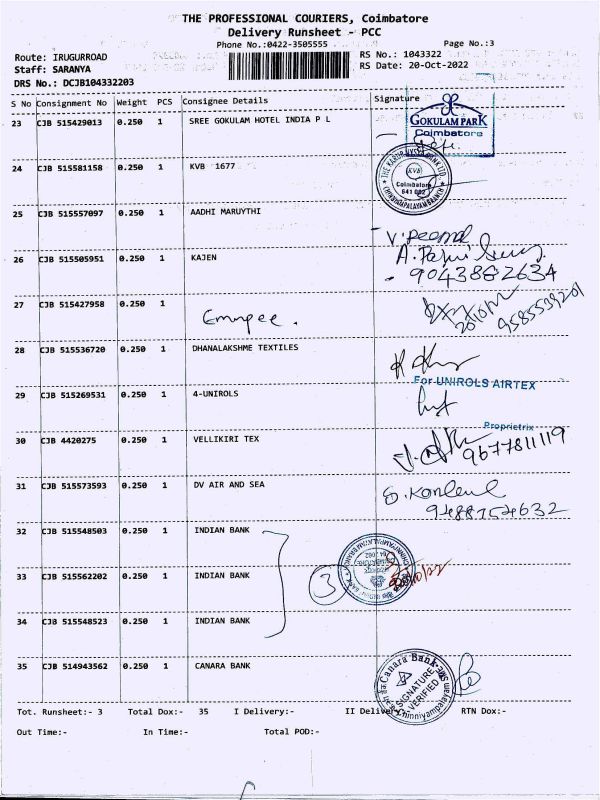 THE PROFESSIONAL COURIERS, Coimbatore
Delivery Runsheet - PCC
Phone No.:0422-3505555
Page No.:3
Route: IRUGURROAD
RS No.: 1043322
Staff: SARANYA
RS Date: 20-Oct-2022
DRS No.: DCJB104332203
S No Consignment No Weight PCS Consignee Details Signature
23 CJB 515429013 0.250 1 SREE GOKULAM HOTEL INDIA P L
GOKULAM PARK
Coimbatore
24 CJB 515581158 0.250 1 KVB 1677
THE KARUR VYSYA BANK LTD.
KVB
Coimbatore
641 062
CHINNIYAMPALAYAM BRANCH
25 CJB 515557097 0.250 1 AADHI MARUYTHI
26 CJB 515505951 0.250 1 KAJEN
9043862634
27 CJB 515427958 0.250 1
Emmpee.
9585539201
28 CJB 515536720 0.250 1 DHANALAKSHME TEXTILES
For UNIROLS AIRTEX
29 CJB 515269531 0.250 1 4-UNIROLS
Proprietrix
30 CJB 4420275 0.250 1 VELLIKIRI TEX
9677811119
31 CJB 515573593 0.250 1 DV AIR AND SEA
32 CJB 515548503 0.250 1 INDIAN BANK
33 CJB 515562202 0.250 1 INDIAN BANK
3
34 CJB 515548523 0.250 1 INDIAN BANK
35 CJB 514943562 0.250 1 CANARA BANK
Canara Bank
SIGNATURE
VERIFIED
Chinniyampalayam
Tot. Runsheet:- 3 Total Dox:- 35 I Delivery:- II Delivery:- RTN Dox:-
Out Time:- In Time:- Total POD:-